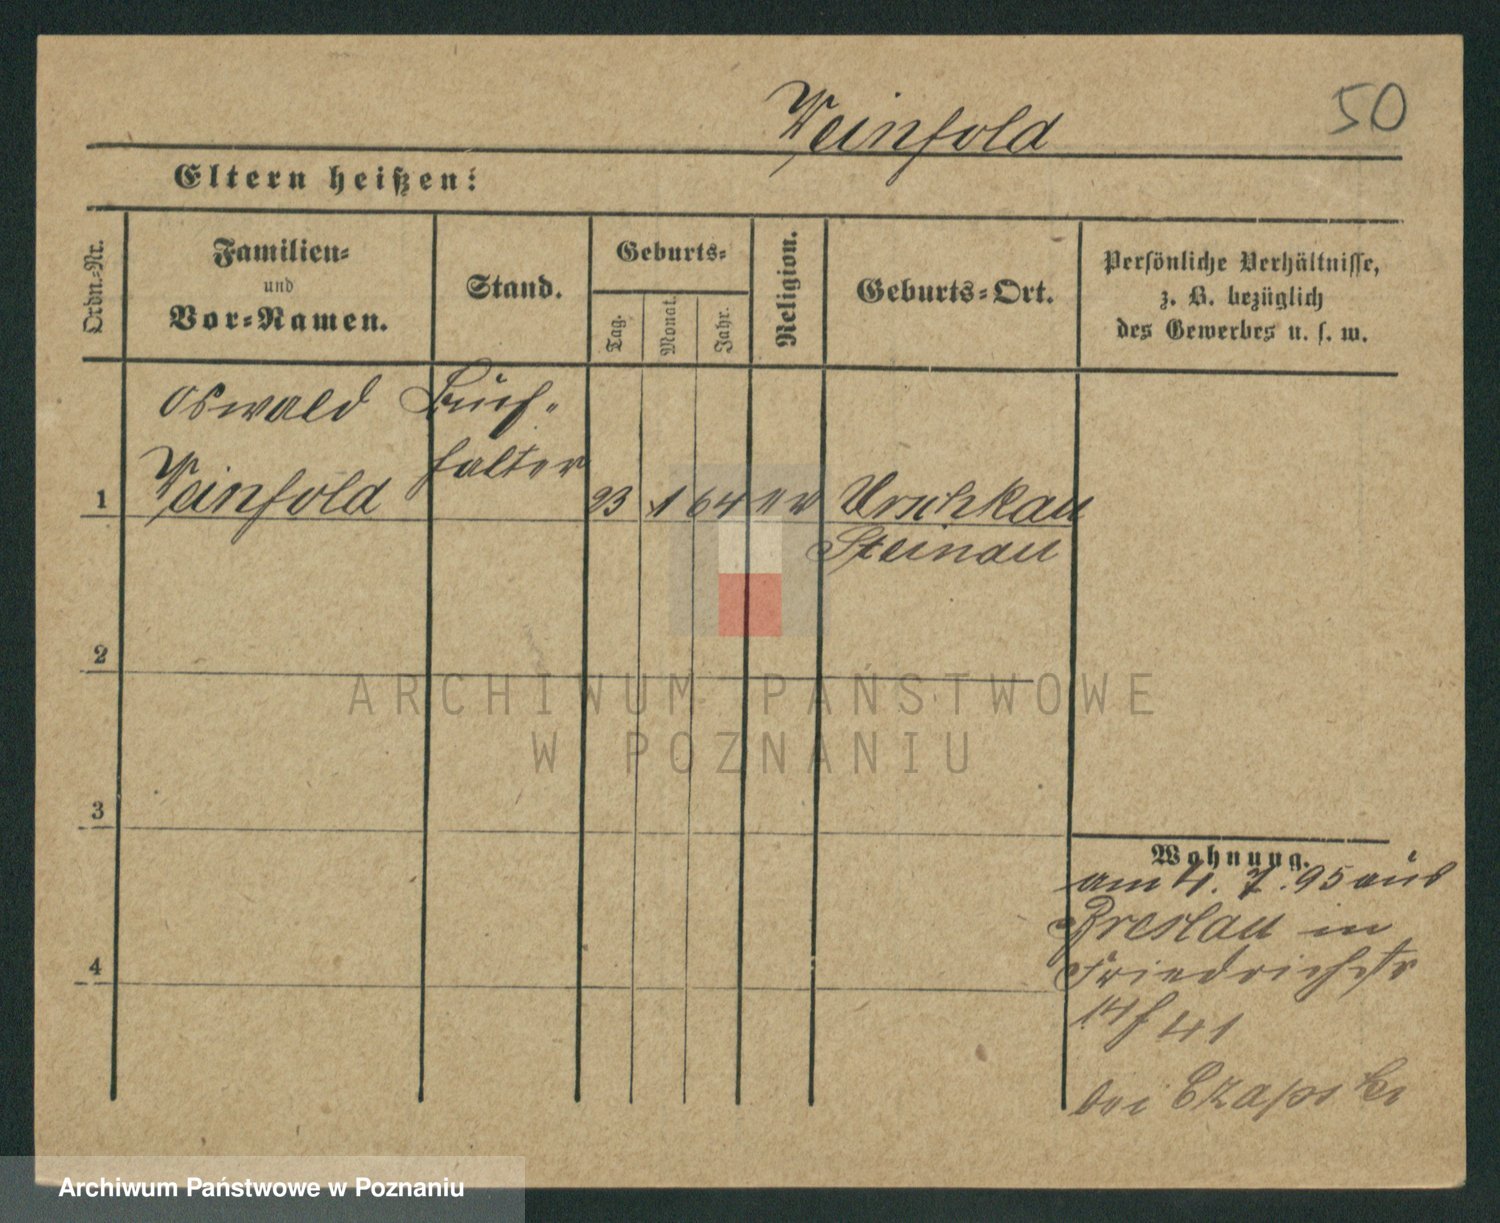 Weinhold
50
Eltern heißen:
Ordn.-Nr.
Familien-
und
Vor-Namen.
Stand.
Geburts-
Tag.
Monat.
Jahr.
Religion.
Geburts-Ort.
Persönliche Verhältnisse,
z. B. bezüglich
des Gewerbes u. s. w.
Oswald
Weinhold
Buch-
halter
1
23 1 64 ev
Urschkau
Steinau
2
3
4
ARCHIWUM PAŃSTWOWE
W POZNANIU
Wohnung.
am 4. 7. 95 aus
Breslau in
Friedrichstr
bei Czapski
Archiwum Państwowe w Poznaniu